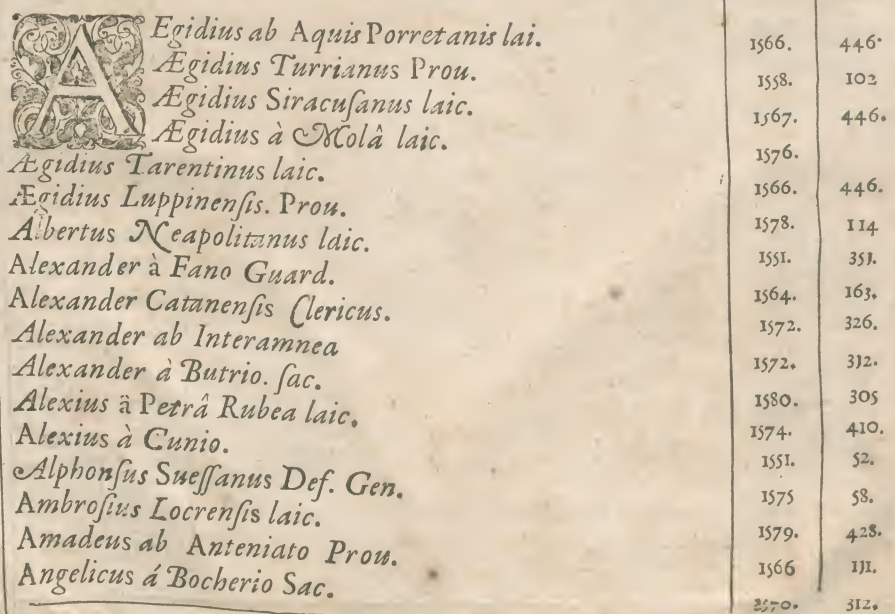 ÆGidius ab Aquis Porretanis lai. 1566. 446.
Ægidius Turrianus Prou. 1558. 102
Ægidius Siracuſanus laic. 1567. 446.
Ægidius à Molâ laic. 1576.
Ægidius Tarentinus laic. 1566. 446.
Ægidius Luppinenſis. Prou. 1578. 114
Albertus Neapolitanus laic. 1551. 351.
Alexander à Fano Guard. 1564. 163.
Alexander Catanenſis Clericus. 1572. 326.
Alexander ab Interamnea 1572. 312.
Alexander à Butrio. ſac. 1580. 305
Alexius ä Petrâ Rubea laic. 1574. 410.
Alexius à Cunio. 1551. 52.
Alphonſus Sueſſanus Def. Gen. 1575 58.
Ambroſius Locrenſis laic. 1579. 428.
Amadeus ab Anteniato Prou. 1566 131.
Angelicus á Bocherio Sac. 1570. 312.